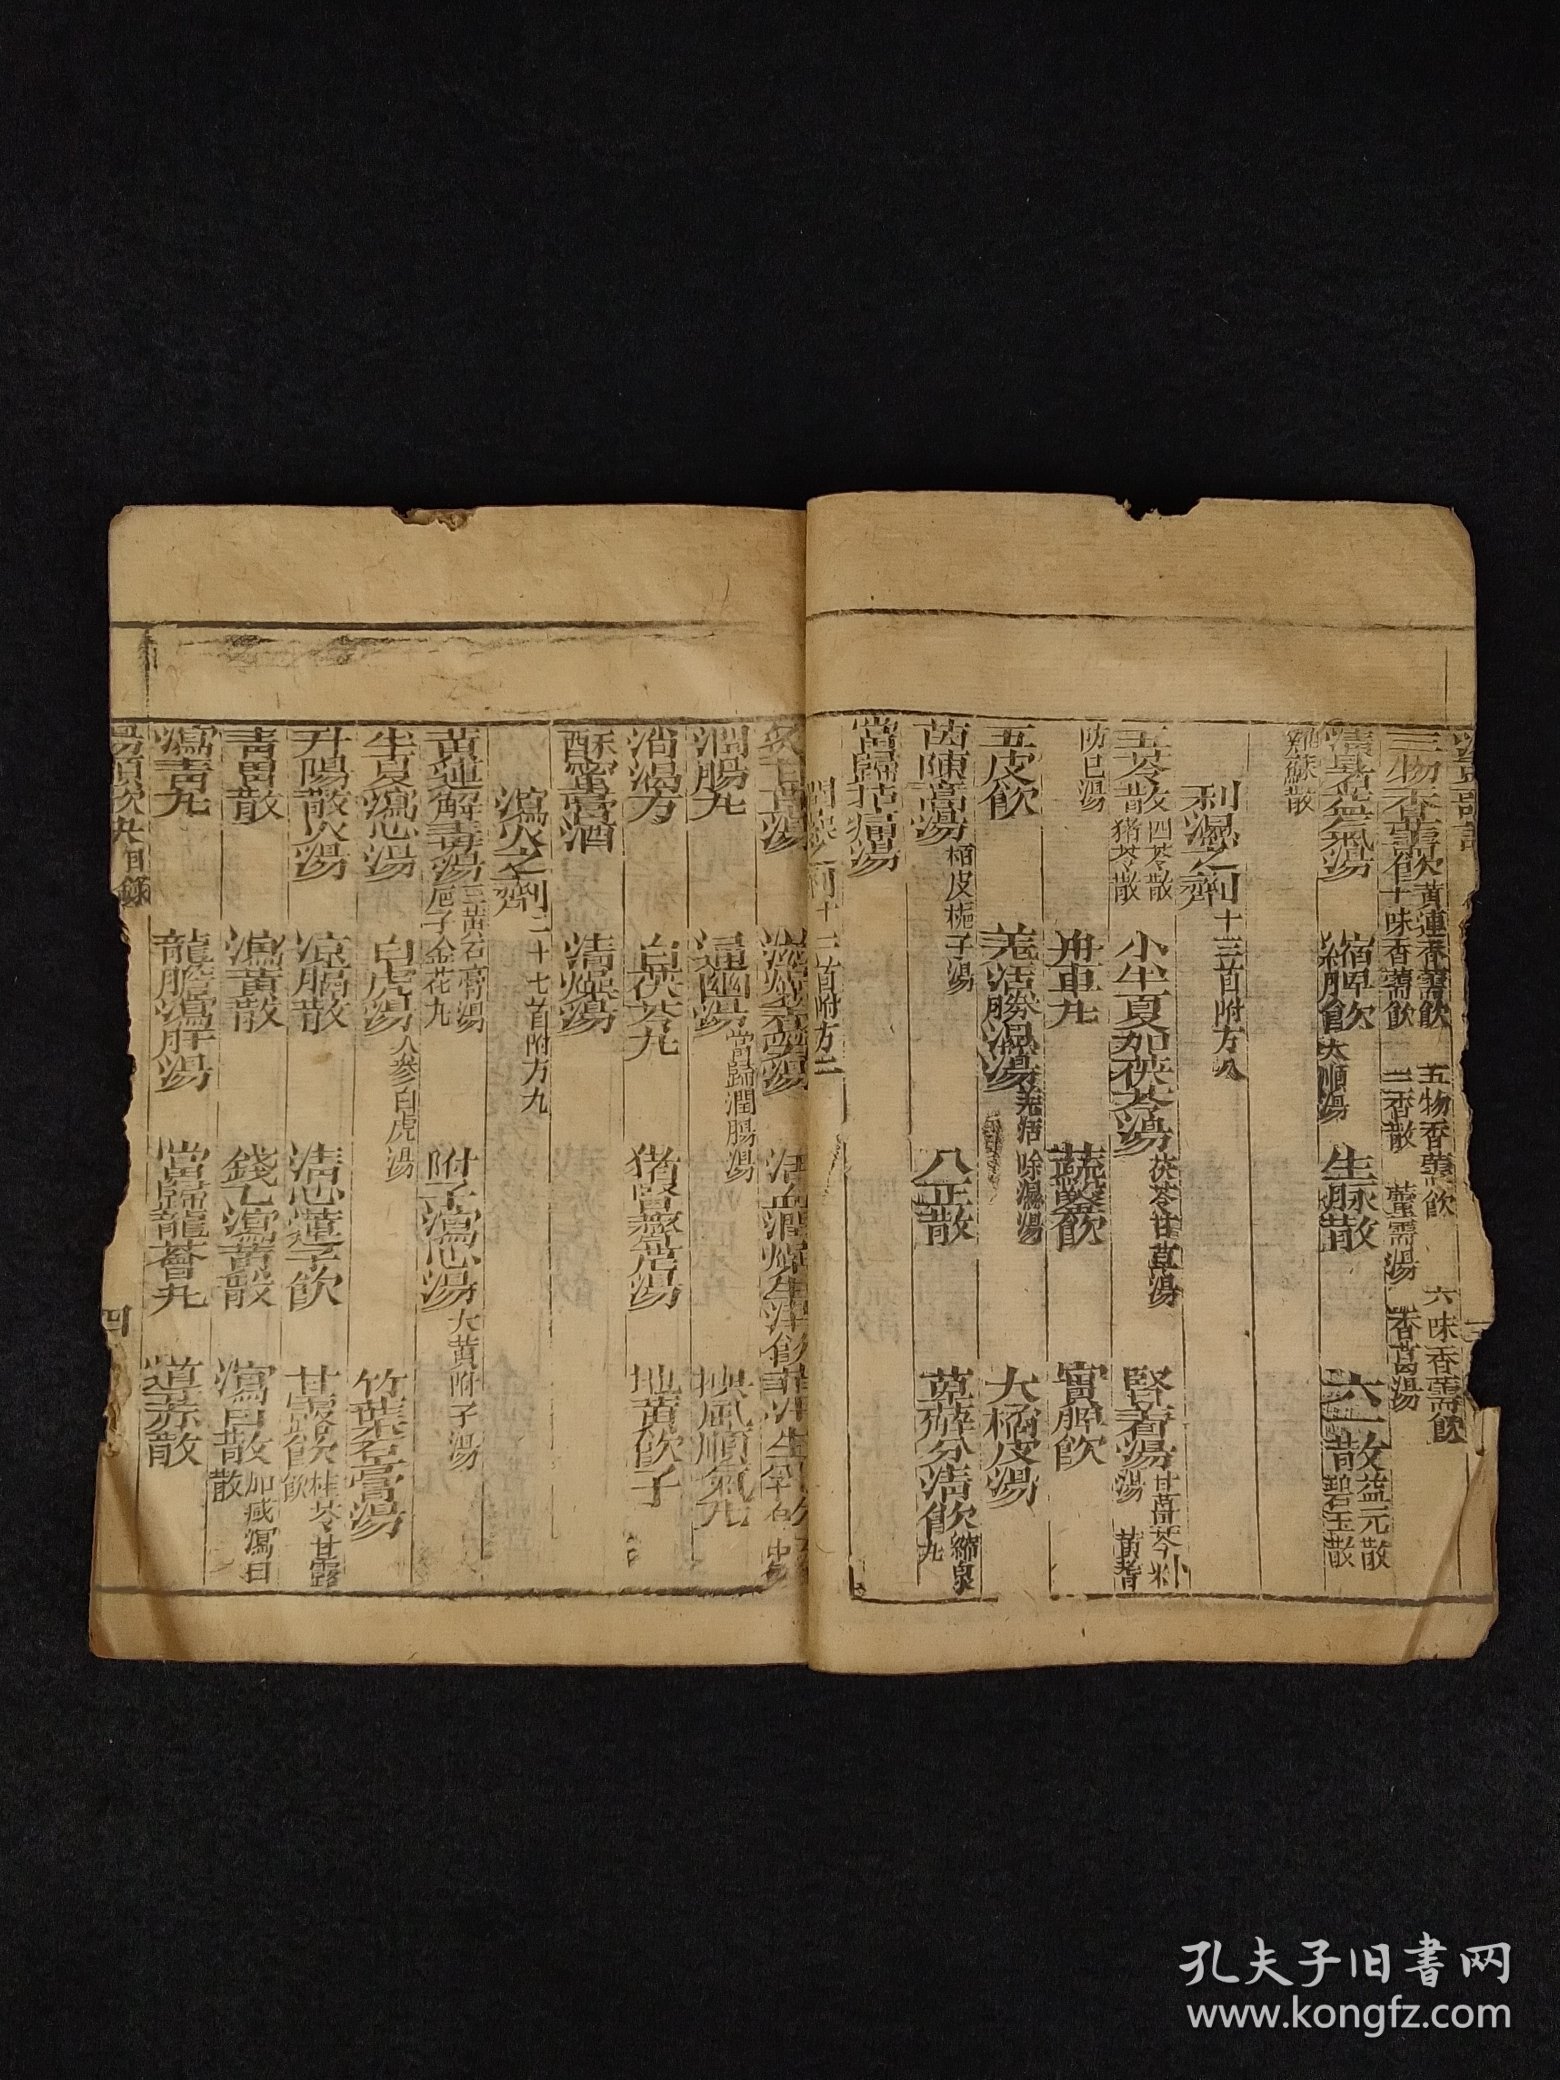 三物香薷飲 黃連香薷飲 五物香薷飲 六味香薷飲
十味香薷飲 二香散 藿薷湯 香葛湯
清暑益氣湯 縮脾飲 大順湯 生脉散 六一散 益元散 碧玉散
雞蘇散
利濕之劑 十三首附方八
五苓散 四苓散 猪苓散 小半夏加茯苓湯 茯苓甘草湯 腎着湯
防已湯 舟車丸 疏鑿飲 實脾飲
五皮飲 羗活勝濕湯 羌活除濕湯 大橘皮湯
茵陳蒿湯 栢皮梔子湯 八正散 萆薢分清飲 縮泉丸
當歸拈痛湯
潤燥之劑 十三首附方二
炙甘草湯 滋燥養榮湯 活血潤燥生津飲
潤腸丸 通幽湯 當歸潤腸湯 搜風順氣丸
消渴方 白茯苓丸 猪腎薺苨湯 地黃飲子
酥蜜膏酒 清燥湯
瀉火之劑 二十七首附方九
黃連解毒湯 三黃石膏湯 梔子金花丸 附子瀉心湯 大黃附子湯
半夏瀉心湯 白虎湯 人參白虎湯 竹葉石膏湯
升陽散火湯 凉膈散 清心蓮子飲 甘露飲 桂苓甘露飲
青胃散 瀉黃散 錢乙瀉黃散 瀉白散 加减瀉白散
瀉青丸 龍膽瀉肝湯 當歸龍薈丸 導赤散
湯頭歌訣目錄
四
孔夫子旧书网
www.kongfz.com